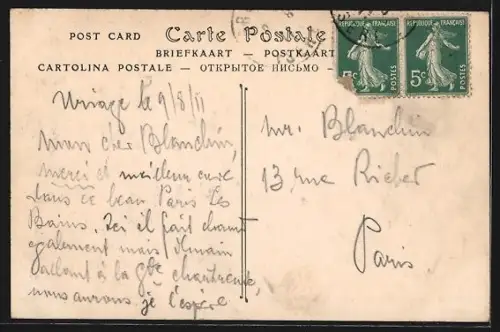 POST CARD
Carte Postale
BRIEFKAART — POSTKAART
CARTOLINA POSTALE — ОТКРЫТОЕ ПИСЬМО
REPUBLIQUE FRANÇAISE
5c POSTES
REPUBLIQUE FRANÇAISE
5c POSTES
Uriage le 9/8/11
Mon cher Blanchin,
merci et meilleur
dans ce beau Paris les
Bains. Ici il fait chaud
egalement mais demain
allant à la gde chartreuse,
nous aurons, je l'espère
Mr. Blanchin
13 rue Richer
Paris